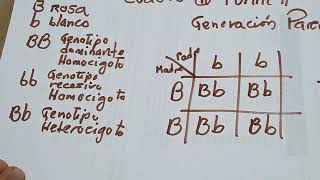 Cuadro de Punnett
B ROSA
Generación Paren
b blanco
BB Genotipo
dominante
Homocigoto
bb Genotipo
recesivo
Homocigoto
Bb Genotipo
Heterocigoto
Padre
Madre
b b
B Bb Bb
B Bb Bb